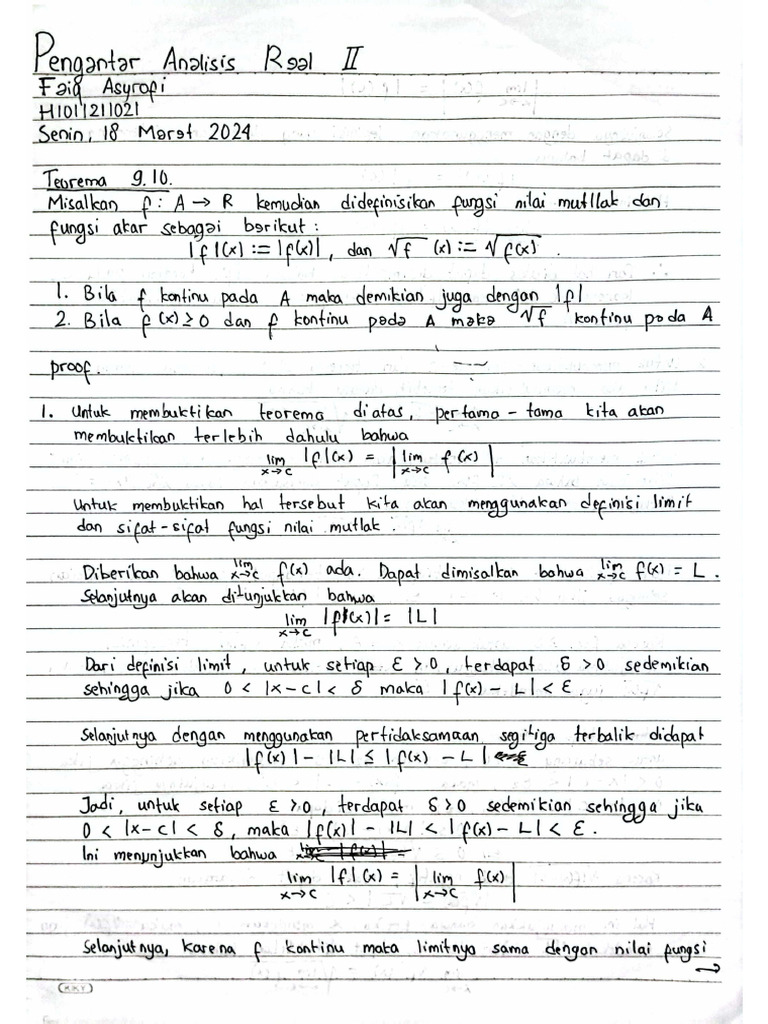 Pengantar Analisis Real II
Faiq Asyrofi
H1011211021
Senin, 18 Maret 2024
Teorema 9.10.
Misalkan f : A → R kemudian didefinisikan fungsi nilai mutllak dan
fungsi akar sebagai berikut :
|f|(x) := |f(x)|, dan √f (x) := √f(x) .
1. Bila f kontinu pada A maka demikian juga dengan |f|
2. Bila f(x) ≥ 0 dan f kontinu pada A maka √f kontinu pada A
proof.
1. Untuk membuktikan teorema diatas, pertama-tama kita akan
membuktikan terlebih dahulu bahwa
lim x→c |f|(x) = |lim x→c f(x)|
Untuk membuktikan hal tersebut kita akan menggunakan definisi limit
dan sifat-sifat fungsi nilai mutlak .
Diberikan bahwa lim x→c f(x) ada. Dapat dimisalkan bahwa lim x→c f(x) = L .
Selanjutnya akan ditunjukkan bahwa
lim x→c |f(x)| = |L|
Dari definisi limit, untuk setiap ε > 0, terdapat δ > 0 sedemikian
sehingga jika 0 < |x-c| < δ maka |f(x) - L| < ε.
Selanjutnya dengan menggunakan pertidaksamaan segitiga terbalik didapat
|f(x)| - |L| ≤ |f(x) - L|
Jadi, untuk setiap ε > 0, terdapat δ > 0 sedemikian sehingga jika
0 < |x-c| < δ, maka |f(x)| - |L| < |f(x) - L| < ε.
Ini menunjukkan bahwa
lim x→c |f|(x) = |lim x→c f(x)|
Selanjutnya, karena f kontinu maka limitnya sama dengan nilai fungsi
→
KKY